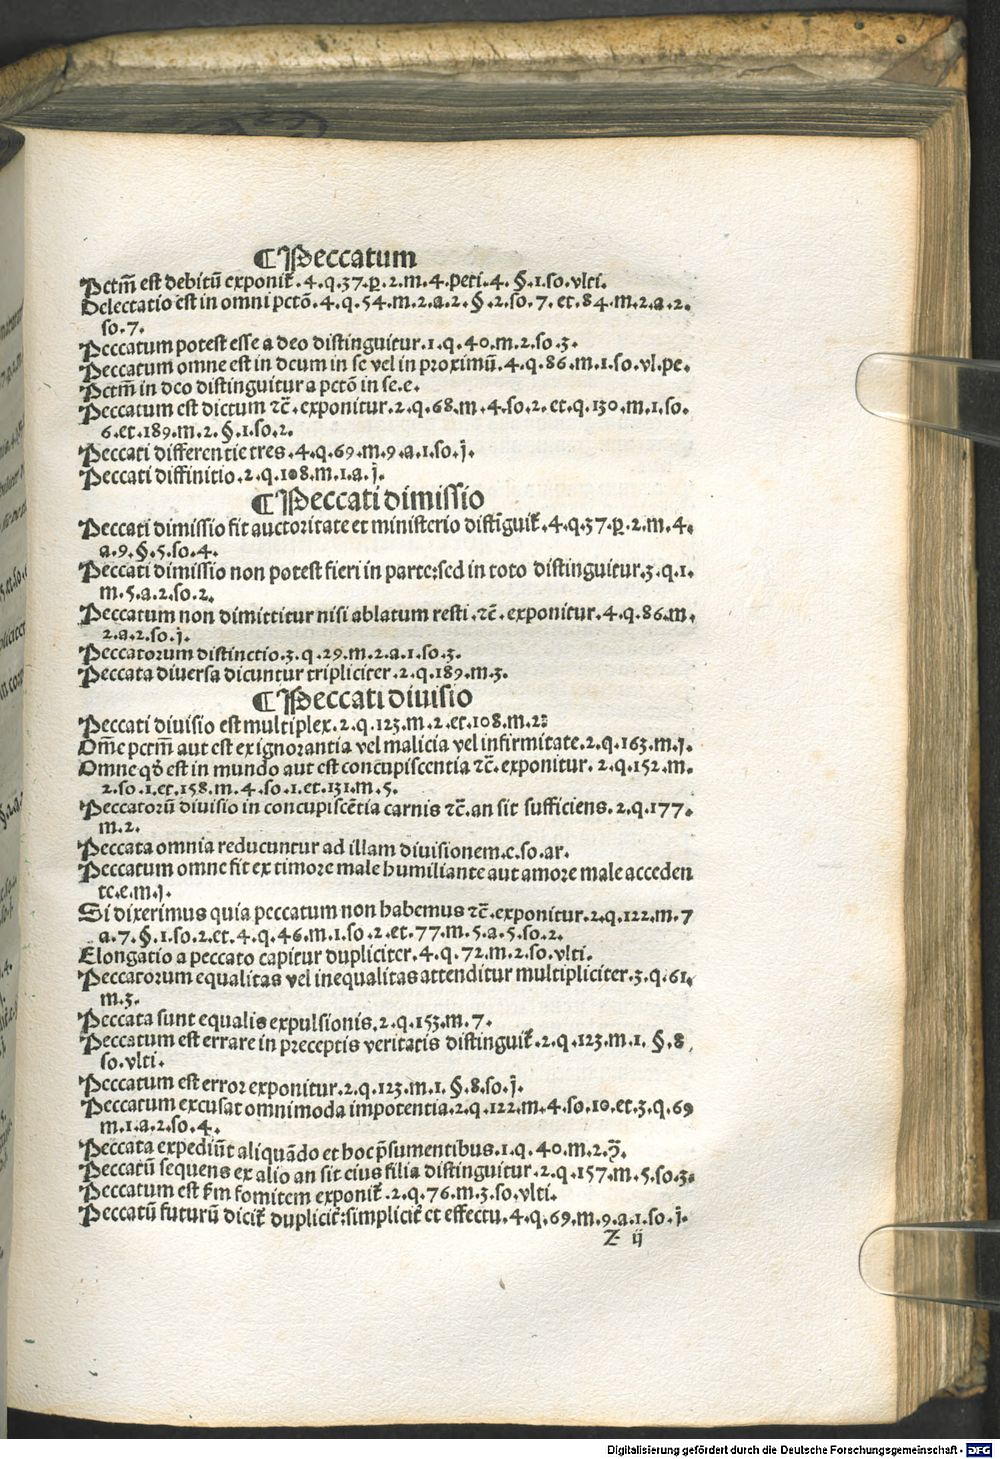 ¶ Peccatum
Pctm̄ est debitū exponit᷑.4.q.37.p̲.2.m.4.peti.4.§.1.so.vlti.
Delectatio est in omni pctō.4.q.54.m.2.a.2.§.2.so.7.et.84.m.2.a.2.
so.7.
Peccatum potest esse a deo distinguitur.1.q.40.m.2.so.3.
Peccatum omne est in deum in se vel in proximū.4.q.86.m.1.so.vl.pe.
Pctm̄ in deo distinguitur a pctō in se.e.
Peccatum est dictum ⁊c̄.exponitur.2.q.68.m.4.so.2.et.q.130.m.1.so.
6.et.189.m.2.§.1.so.2.
Peccati differentie tres.4.q.69.m.9.a.1.so.j.
Peccati diffinitio.2.q.108.m.1.a.j.
¶ Peccati dimissio
Peccati dimissio fit auctoritate et ministerio distīguit᷑.4.q.37.p̲.2.m.4.
a.9.§.5.so.4.
Peccati dimissio non potest fieri in parte:sed in toto distinguitur.3.q.1.
m.5.a.2.so.2.
Peccatum non dimittitur nisi ablatum resti.⁊c̄.exponitur.4.q.86.m.
2.a.2.so.j.
Peccatorum distinctio.3.q.29.m.2.a.1.so.3.
Peccata diversa dicuntur tripliciter.2.q.189.m.3.
¶ Peccati diuisio
Peccati diuisio est multiplex.2.q.123.m.2.et.108.m.2.
Om̄e pctm̄ aut est ex ignorantia vel malicia vel infirmitate.2.q.163.m.j.
Omne qd̄ est in mundo aut est concupiscentia ⁊c̄.exponitur.2.q.152.m.
2.so.1.et.158.m.4.so.1.et.131.m.5.
Peccatorū diuisio in concupiscētia carnis ⁊c̄.an sit sufficiens.2.q.177.
m.2.
Peccata omnia reducuntur ad illam diuisionem.e.so.ar.
Peccatum omne fit ex timore male humiliante aut amore male acceden
te.e.m.j.
Si dixerimus quia peccatum non habemus ⁊c̄.exponitur.2.q.122.m.7
a.7.§.1.so.2.et.4.q.46.m.1.so.2.et.77.m.5.a.5.so.2.
Elongatio a peccato capitur dupliciter.4.q.72.m.2.so.vlti.
Peccatorum equalitas vel inequalitas attenditur multipliciter.3.q.61.
m.3.
Peccata sunt equalis expulsionis.2.q.153.m.7.
Peccatum est errare in preceptis veritatis distinguit᷑.2.q.123.m.1.§.8,
so.vlti.
Peccatum est error exponitur.2.q.123.m.1.§.8.so.j.
Peccatum excusat omnimoda impotentia.2.q.122.m.4.so.10.et.3.q.69
m.1.a.2.so.4.
Peccata expediūt aliquādo et hoc p̄sumentibus.1.q.40.m.2.
Peccatū sequens ex alio an sit eius filia distinguitur.2.q.157.m.5.so.3.
Peccatum est ẜm fomitem exponit᷑.2.q.76.m.3.so.vlti.
Peccatū futurū dicit᷑ duplicit᷑:simplicit᷑ et effectu.4.q.69.m.9.a.1.so.j.
Z ij
Digitalisierung gefördert durch die Deutsche Forschungsgemeinschaft - DFG